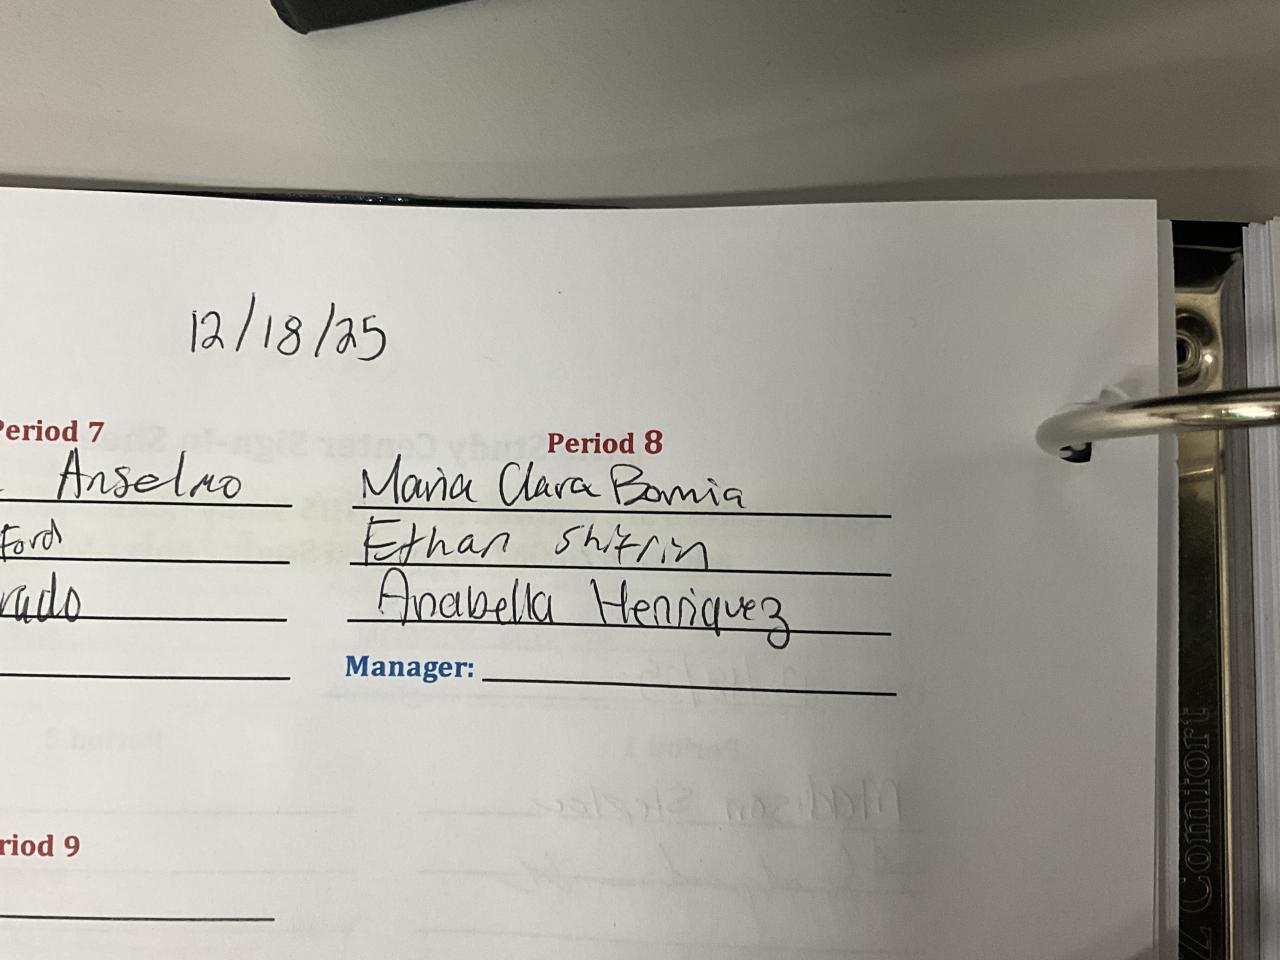 12/18/25
Period 7
Period 8
Anselmo
Maria Clara Bornia
Ford
Ethan Shifrin
rado
Anabella Henriquez
Manager:
riod 9
Z Comfort